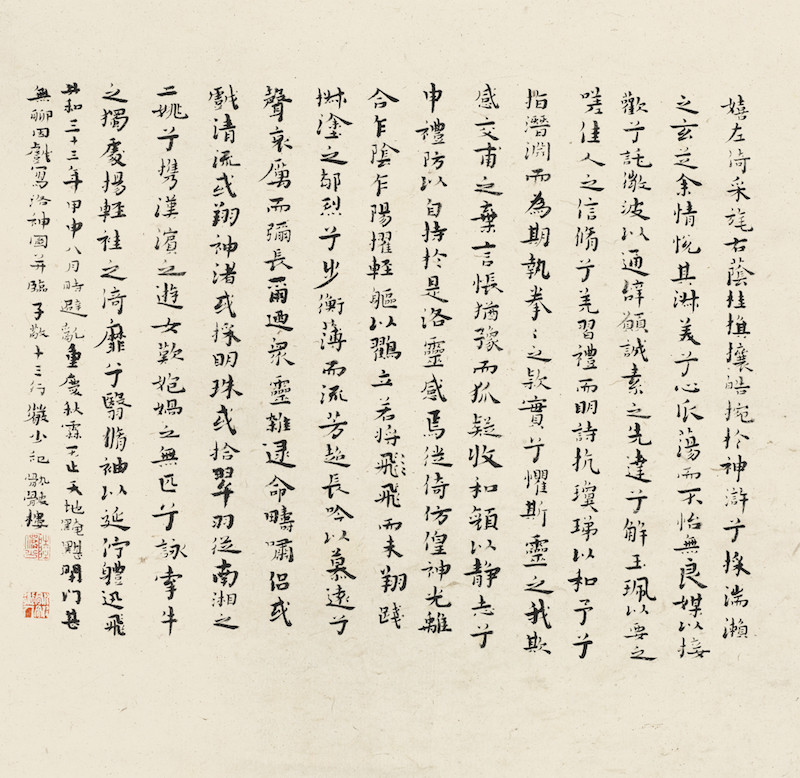 嬉左倚采旄右蔭桂旗攘皓捥於神滸兮採湍瀨
之玄芝余情悅其淋美兮心𠂢蕩而不怡無良媒以接
歡兮託微波以通辭願誠素之先達兮解玉珮以要之
嗟佳人之信脩兮羌習禮而明詩抗瓊珶以和予兮
指潛淵而為期執拳〻之欵實兮懼斯靈之我欺
感交甫之棄言悵猶豫而狐疑收和顏以静志兮
申禮防以自持於是洛靈感焉徙倚仿偟神光離
合乍陰乍陽擢輕軀以鶴立若將飛飛而未翔踐
椒塗之郁烈兮步衡薄而流芳超長吟以慕遠兮
聲哀厲而彌長爾迺衆靈雜遝命疇嘯侶或
戲清流或翔神渚或採明珠或拾翠羽從南湘之
二姚兮携漢濱之遊女歎炮媧之無匹兮詠牽牛
之獨處揚輕袿之猗靡兮翳脩袖以延佇軆迅飛
共和三十三年甲申八月時避亂重慶秋霖不止天地黤黮閉门甚
無聊因戲寫洛神圖并臨子敬十三行 小记骩骳樓